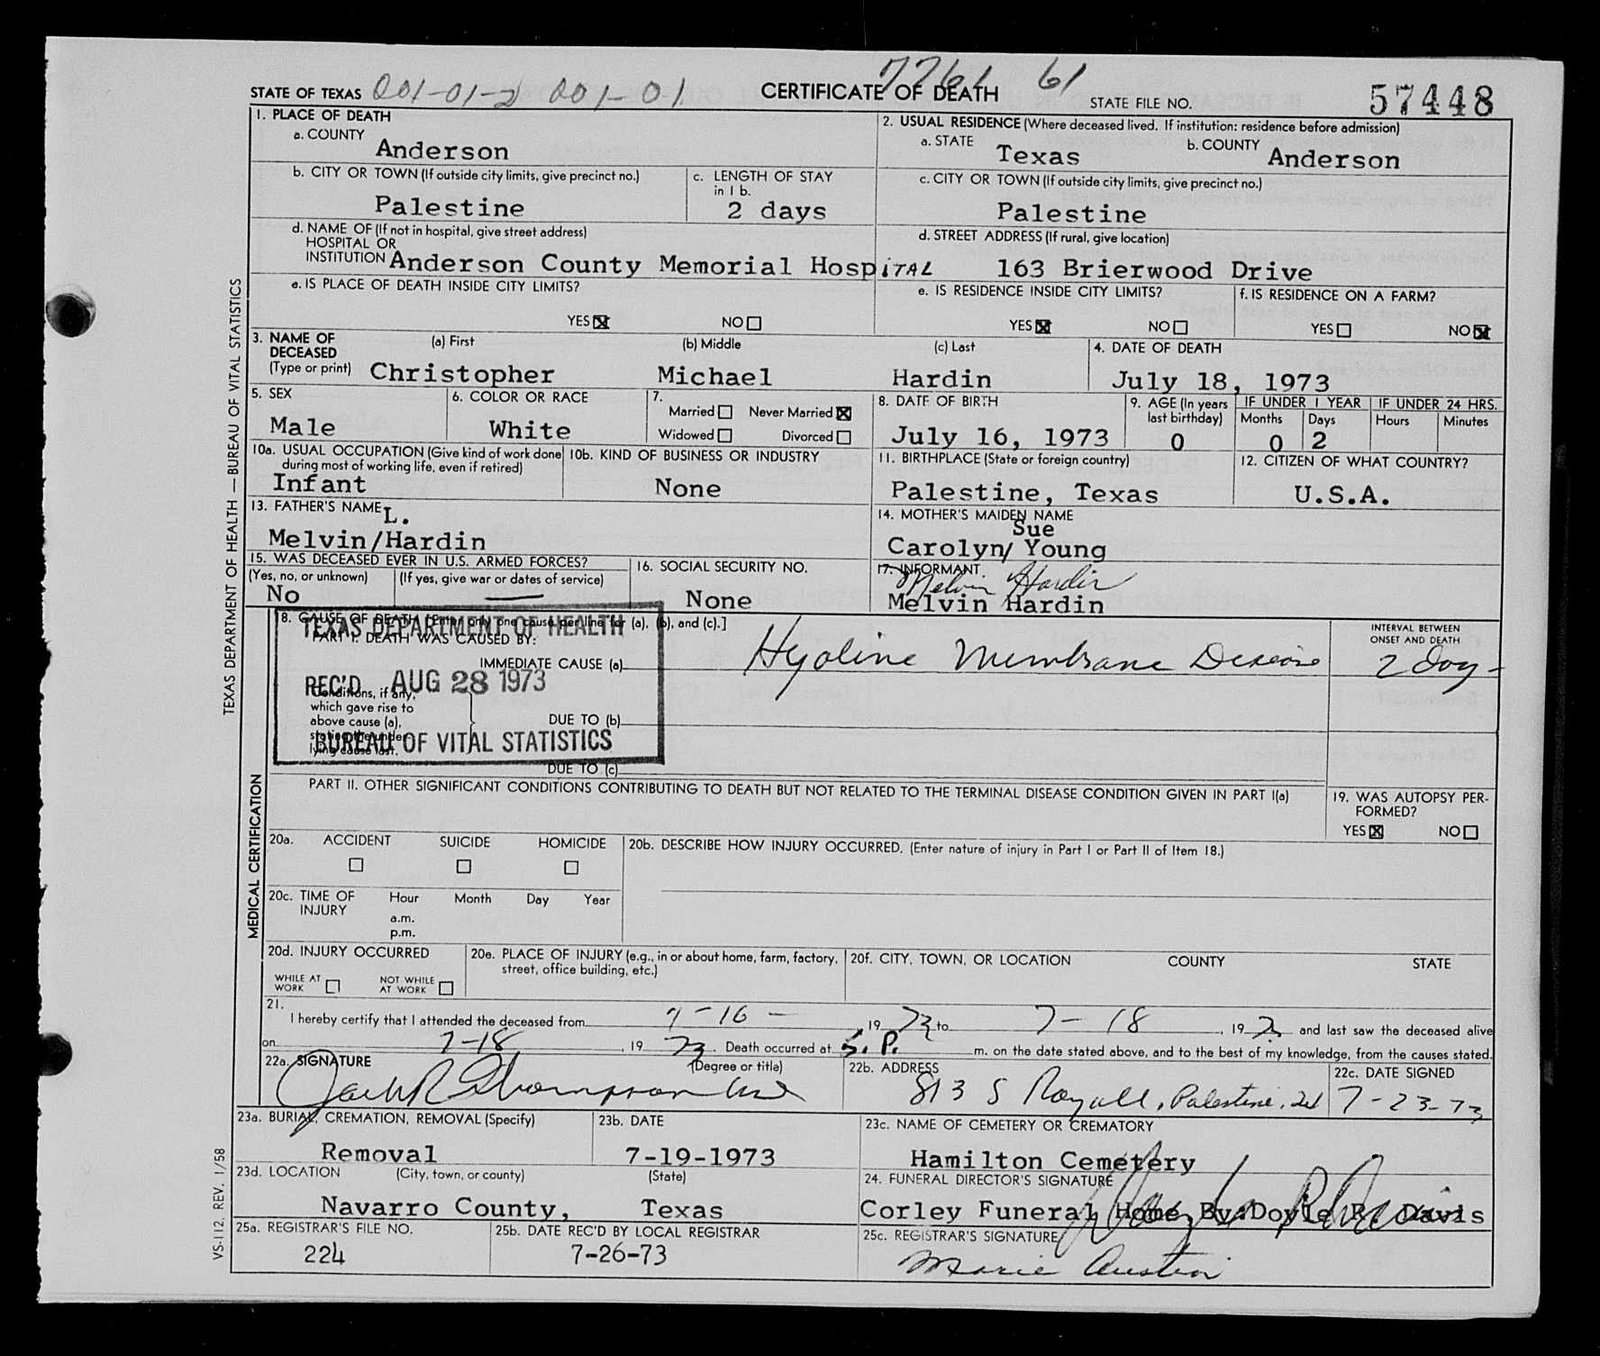 STATE OF TEXAS 001-01-2 001-01 CERTIFICATE OF DEATH 7761 61 STATE FILE NO. 57448
1. PLACE OF DEATH
a. COUNTY
Anderson
2. USUAL RESIDENCE (Where deceased lived. If institution: residence before admission)
a. STATE b. COUNTY
Texas Anderson
b. CITY OR TOWN (If outside city limits, give precinct no.)
Palestine
c. LENGTH OF STAY
in 1 b.
2 days
c. CITY OR TOWN (If outside city limits, give precinct no.)
Palestine
d. NAME OF (If not in hospital, give street address)
HOSPITAL OR
INSTITUTION Anderson County Memorial Hospital
d. STREET ADDRESS (If rural, give location)
163 Brierwood Drive
e. IS PLACE OF DEATH INSIDE CITY LIMITS?
YES ☒ NO ☐
e. IS RESIDENCE INSIDE CITY LIMITS?
YES ☒ NO ☐
f. IS RESIDENCE ON A FARM?
YES ☐ NO ☒
3. NAME OF
DECEASED
(Type or print)
(a) First (b) Middle (c) Last
Christopher Michael Hardin
4. DATE OF DEATH
July 18, 1973
5. SEX
Male
6. COLOR OR RACE
White
7.
Married ☐ Never Married ☒
Widowed ☐ Divorced ☐
8. DATE OF BIRTH
July 16, 1973
9. AGE (In years
last birthday)
0
IF UNDER 1 YEAR
Months Days
0 2
IF UNDER 24 HRS.
Hours Minutes
10a. USUAL OCCUPATION (Give kind of work done
during most of working life, even if retired)
Infant
10b. KIND OF BUSINESS OR INDUSTRY
None
11. BIRTHPLACE (State or foreign country)
Palestine, Texas
12. CITIZEN OF WHAT COUNTRY?
U.S.A.
13. FATHER'S NAME
L.
Melvin/Hardin
14. MOTHER'S MAIDEN NAME
Sue
Carolyn/ Young
15. WAS DECEASED EVER IN U.S. ARMED FORCES?
(Yes, no, or unknown) (If yes, give war or dates of service)
No —
16. SOCIAL SECURITY NO.
None
17. INFORMANT
Melvin Hardin
Melvin Hardin
18. CAUSE OF DEATH [Enter only one cause per line for (a), (b), and (c).]
PART I. DEATH WAS CAUSED BY:
IMMEDIATE CAUSE (a) Hyaline Membrane Disease
INTERVAL BETWEEN
ONSET AND DEATH
2 day
TEXAS DEPARTMENT OF HEALTH
REC'D AUG 28 1973
BUREAU OF VITAL STATISTICS
Conditions, if any,
which gave rise to
above cause (a),
stating the under-
lying cause last.
DUE TO (b)
DUE TO (c)
PART II. OTHER SIGNIFICANT CONDITIONS CONTRIBUTING TO DEATH BUT NOT RELATED TO THE TERMINAL DISEASE CONDITION GIVEN IN PART I(a)
19. WAS AUTOPSY PER-
FORMED?
YES ☒ NO ☐
20a. ACCIDENT SUICIDE HOMICIDE
☐ ☐ ☐
20b. DESCRIBE HOW INJURY OCCURRED. (Enter nature of injury in Part I or Part II of Item 18.)
20c. TIME OF
INJURY
Hour Month Day Year
a.m.
p.m.
20d. INJURY OCCURRED
WHILE AT
WORK ☐
NOT WHILE
AT WORK ☐
20e. PLACE OF INJURY (e.g., in or about home, farm, factory,
street, office building, etc.)
20f. CITY, TOWN, OR LOCATION COUNTY STATE
21.
I hereby certify that I attended the deceased from 7-16- , 19 73 to 7-18 , 19 73 and last saw the deceased alive
on 7-18 , 19 73. Death occurred at 5. P. m. on the date stated above, and to the best of my knowledge, from the causes stated.
22a. SIGNATURE (Degree or title)
Jack R Thompson MD
22b. ADDRESS
813 S Royall, Palestine,
22c. DATE SIGNED
7-23-73
23a. BURIAL, CREMATION, REMOVAL (Specify)
Removal
23b. DATE
7-19-1973
23c. NAME OF CEMETERY OR CREMATORY
Hamilton Cemetery
23d. LOCATION (City, town, or county) (State)
Navarro County, Texas
24. FUNERAL DIRECTOR'S SIGNATURE
Corley Funeral Home By:Doyle R. Davis
25a. REGISTRAR'S FILE NO.
224
25b. DATE REC'D BY LOCAL REGISTRAR
7-26-73
25c. REGISTRAR'S SIGNATURE
Marie Austin
TEXAS DEPARTMENT OF HEALTH — BUREAU OF VITAL STATISTICS
MEDICAL CERTIFICATION
VS-112, REV. 1/58